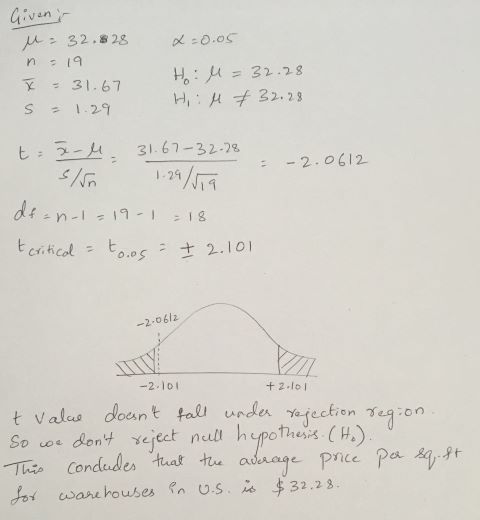 Given :-
μ = 32.28    α = 0.05
n = 19
x̄ = 31.67    H₀ : μ = 32.28
s = 1.29    H₁ : μ ≠ 32.28
t = x̄ - μ / s/√n = 31.67 - 32.28 / 1.29/√19 = - 2.0612
df = n - 1 = 19 - 1 = 18
t critical = t₀.₀₅ = ± 2.101
-2.0612
-2.101    +2.101
t value doesn't fall under rejection region.
So we don't reject null hypothesis. (H₀).
This concludes that the average price per sq.ft
for warehouses in U.S. is $32.28.